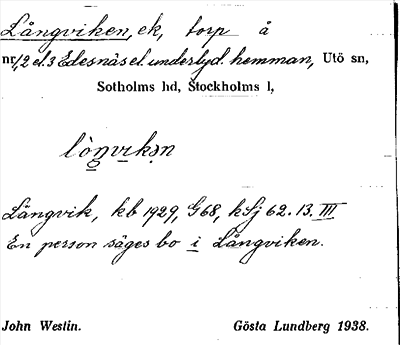 Långviken, ek, torp å
nr 1/2 el. 3 Edesnäs el. underlyd. hemman, Utö sn,
Sotholms hd, Stockholms l,
lòŋvikən
Långvik, kb 1929, G68, kSj 62. 13. III
En person säges bo i Långviken.
John Westin. Gösta Lundberg 1938.